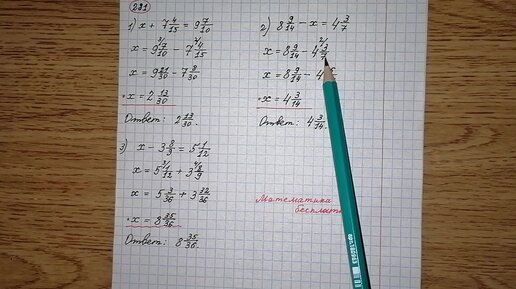 281
1) x + 7 4/15 = 9 7/10
x = 9 3/7/10 − 7 2/4/15
x = 9 21/30 − 7 8/30
x = 2 13/30
Ответ: 2 13/30.
2) 8 9/14 − x = 4 3/7
x = 8 9/14 − 4 2/3/7
x = 8 9/14 − 4 6/
x = 4 3/14
Ответ: 4 3/14.
3) x − 3 8/9 = 5 1/12
x = 5 3/1/12 + 3 4/8/9
x = 5 3/36 + 3 32/36
x = 8 35/36
Ответ: 8 35/36.
Математика
бесплатно